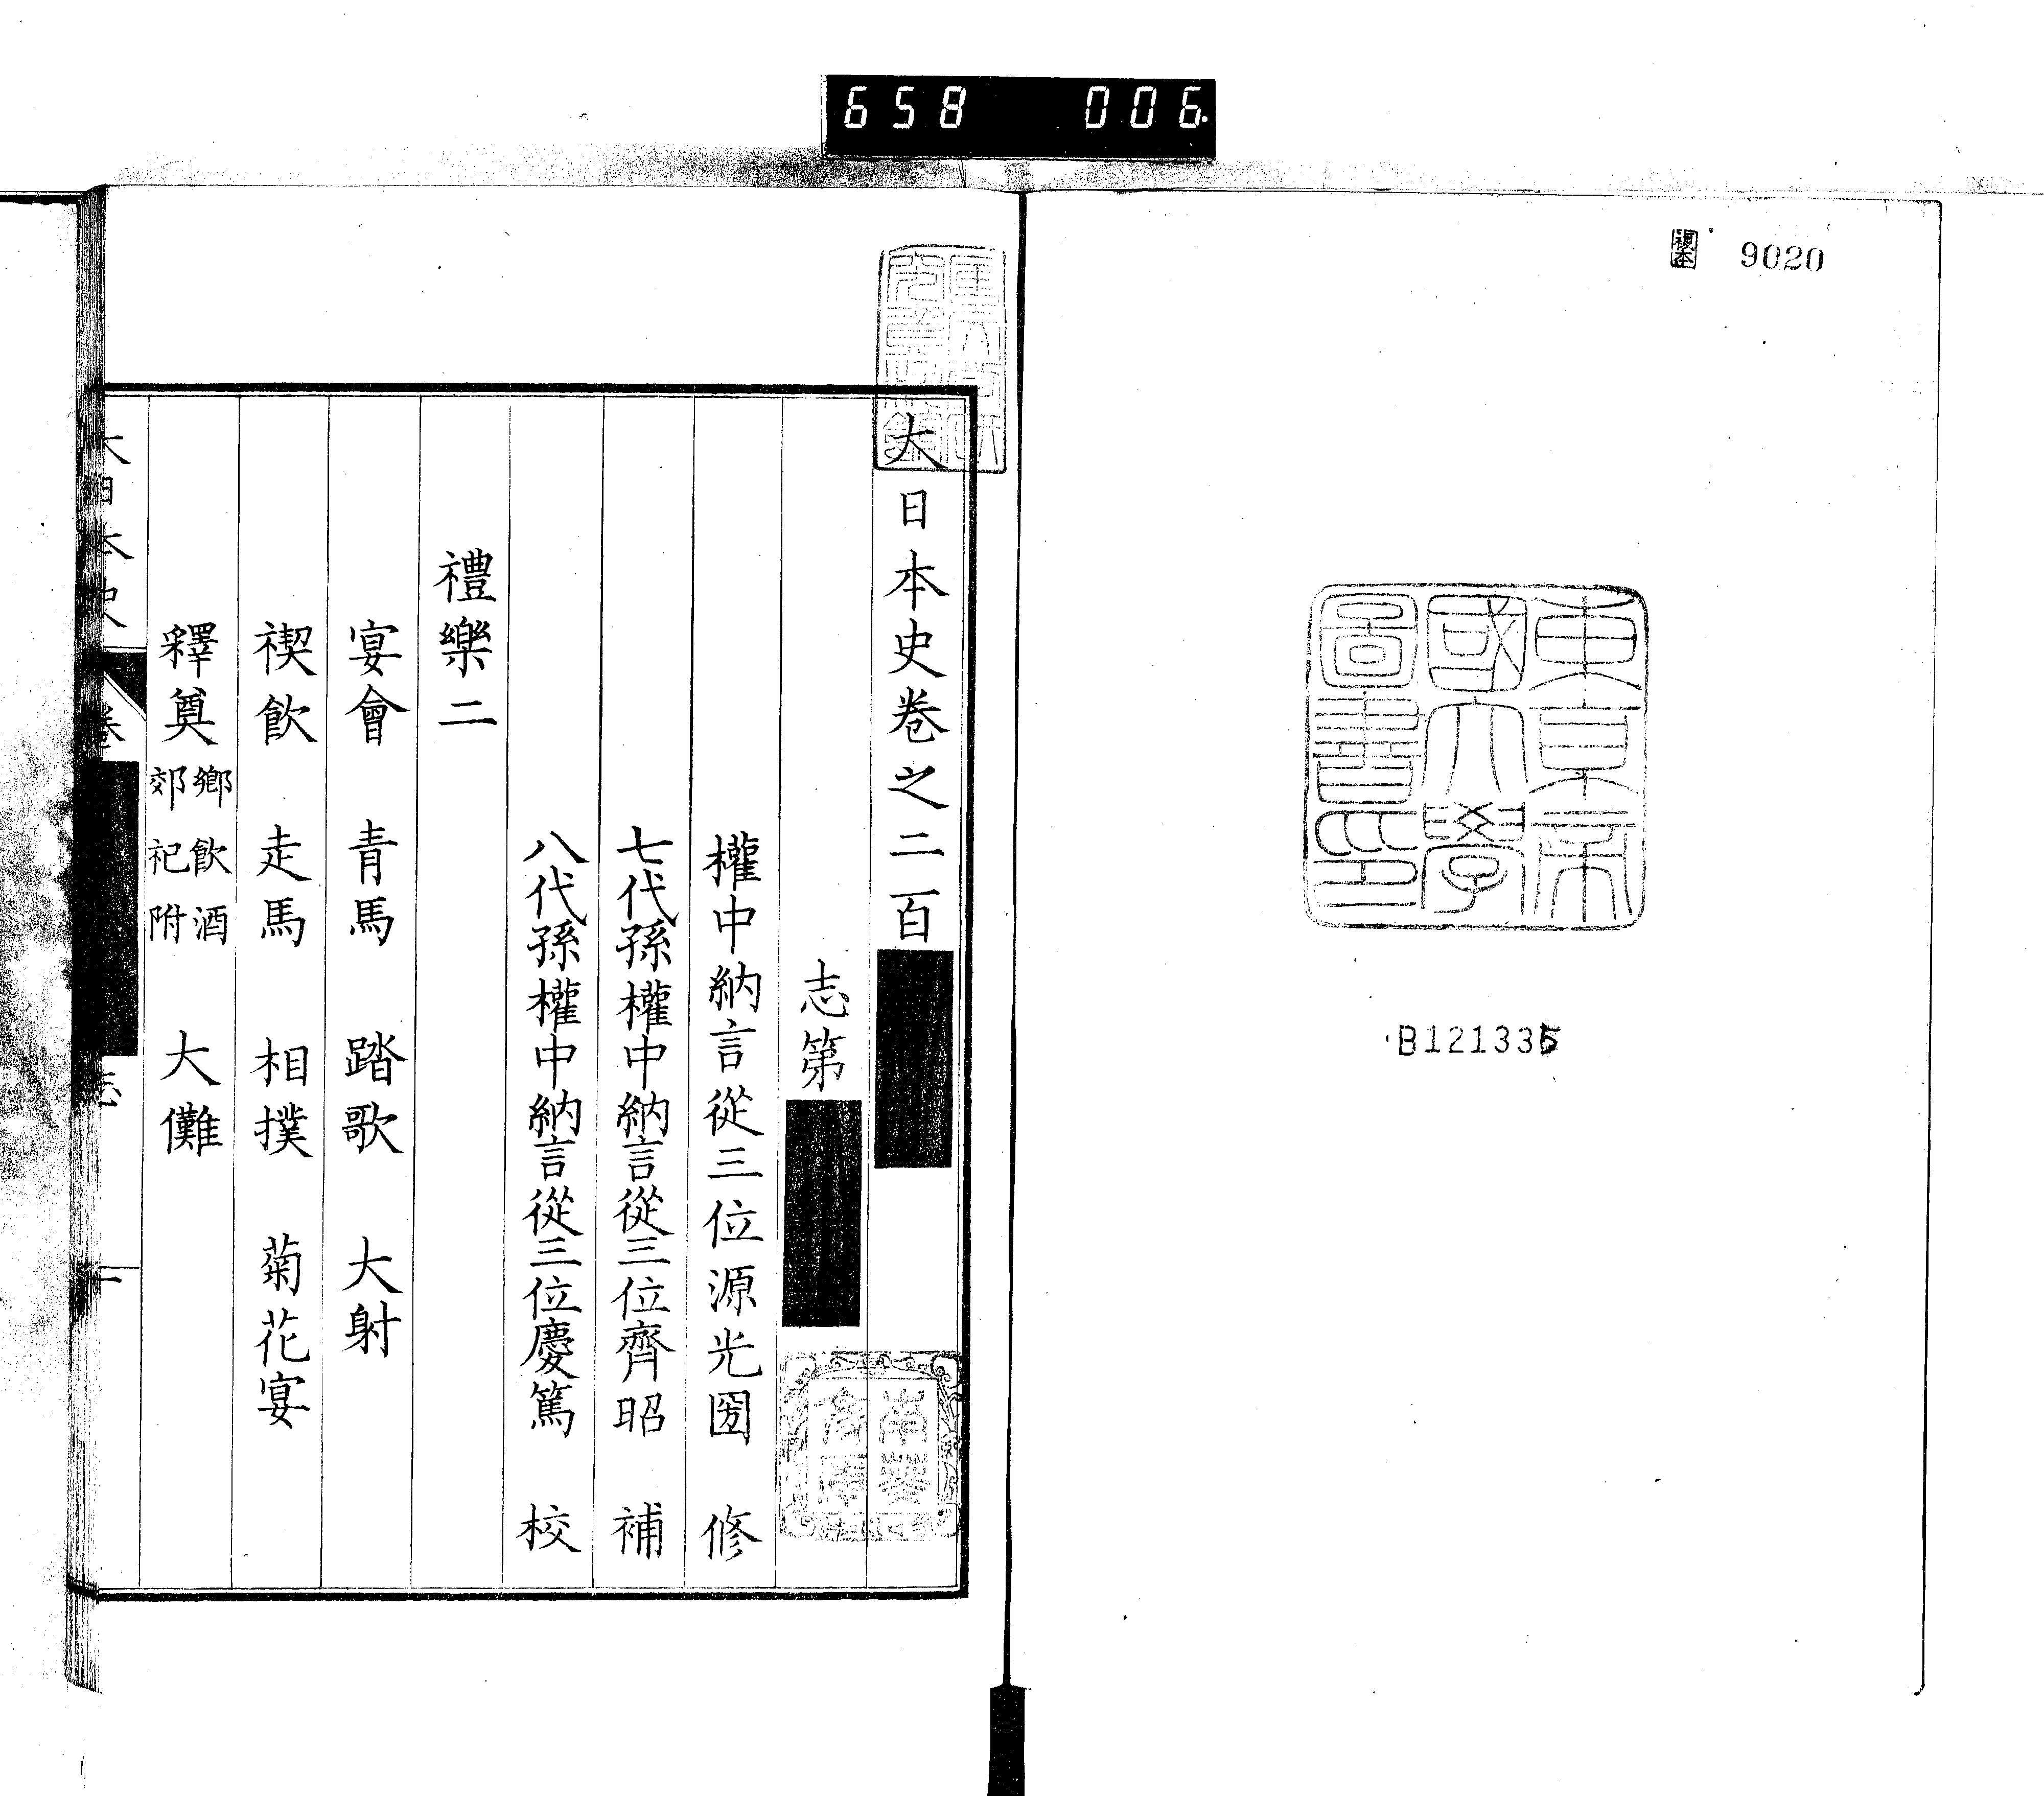 658 006
複本
9020
東京帝
國大學
圖書印
B121335
大日本史卷之二百
志第
權中納言從三位源光圀 修
七代孫權中納言從三位齊昭 補
八代孫權中納言從三位慶篤 校
禮樂二
宴會 青馬 踏歌 大射
禊飲 走馬 相撲 菊花宴
釋奠 鄉飲酒 郊祀附 大儺
大日本史 卷 志 一